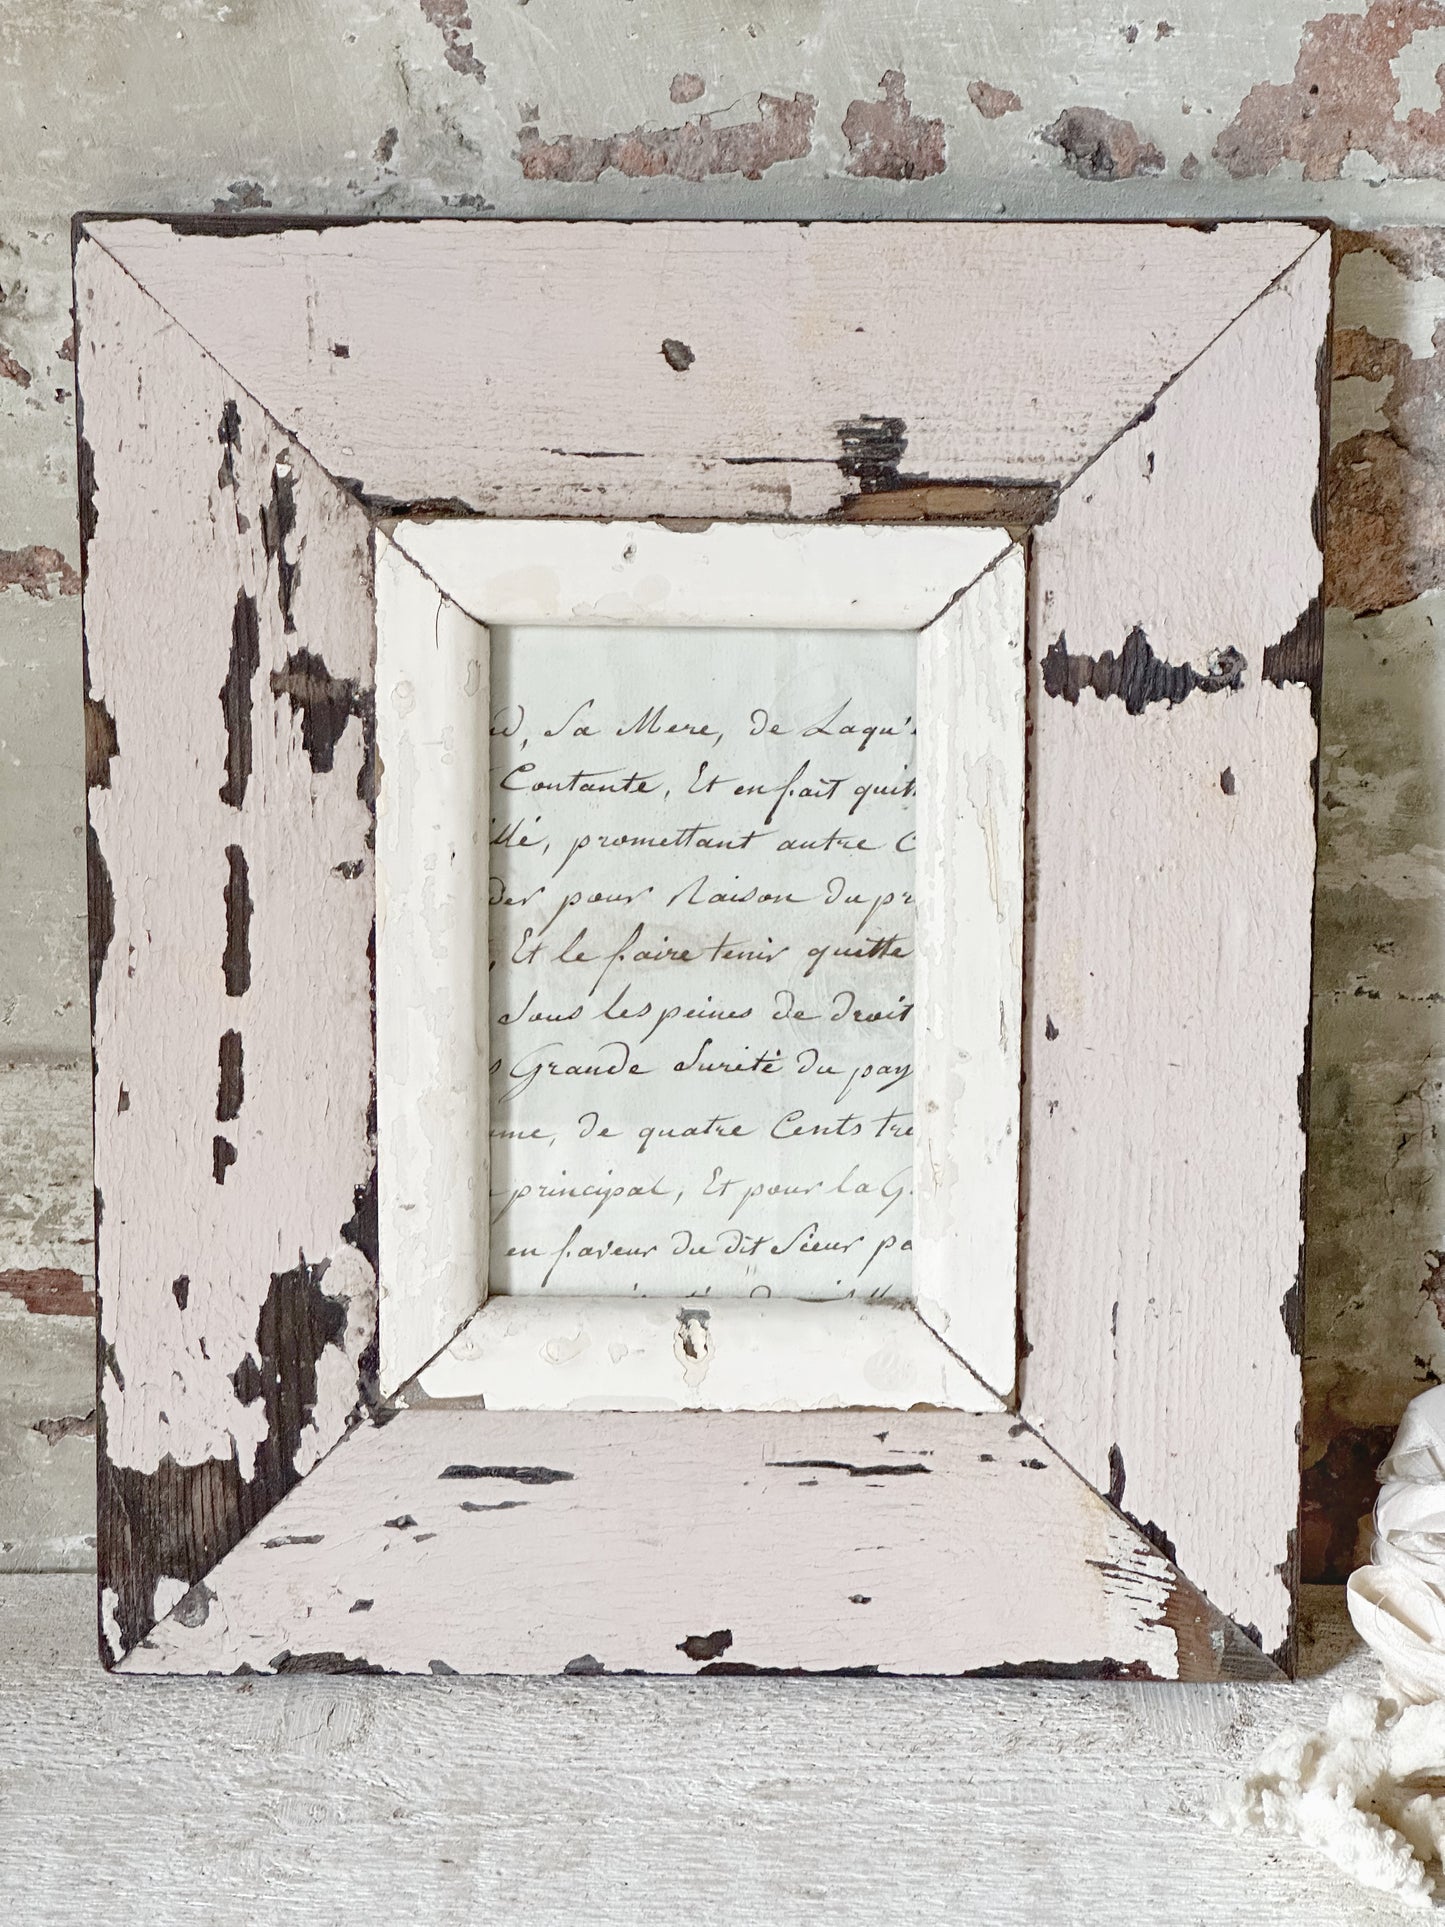 d, Sa Mere, de Laqu'
Contante, Et en fait quit
illé, promettant autre C
der pour Raison du pr
, Et le faire tenir quitte
Sous les peines de droit
s Grande Sureté du pay
me, de quatre Cents tre
principal, Et pour la G
en faveur du dit Sieur pa